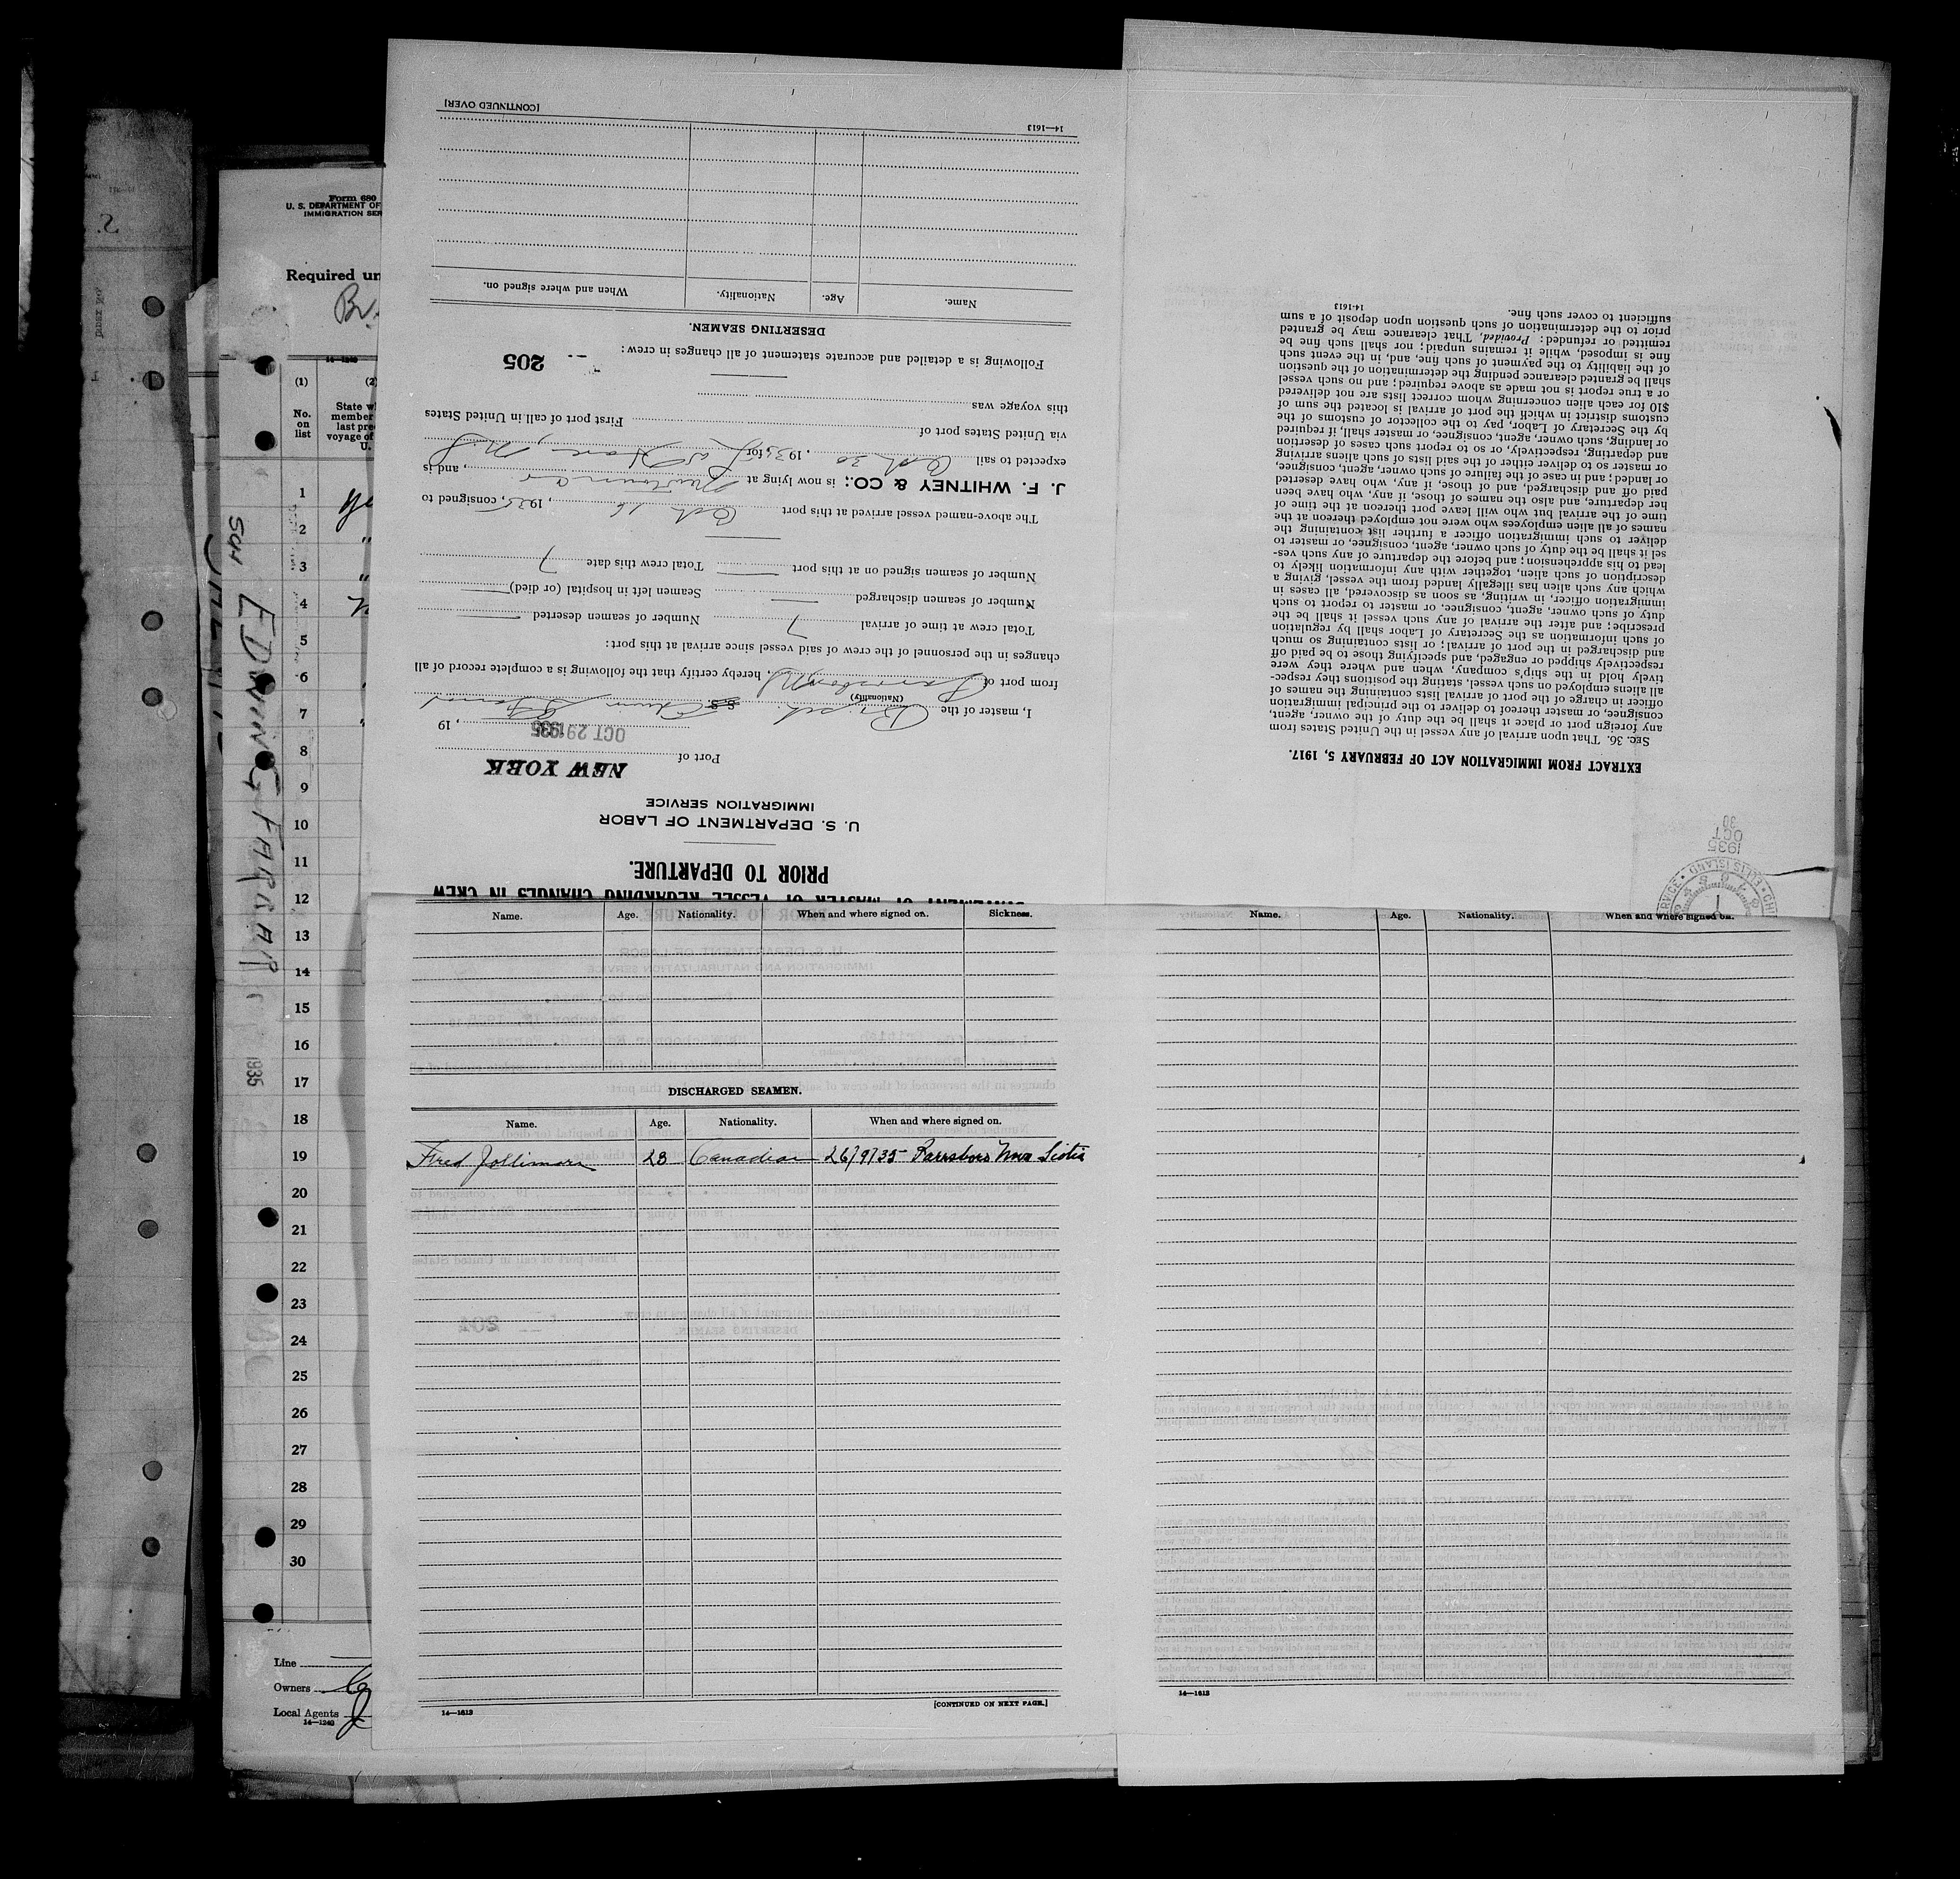 Form 680
U. S. DEPARTMENT OF
IMMIGRATION SER
Required un
14—1240
(1)
No.
on
list
(2)
State w
member
last pre
voyage of
U.
1
2
3
4
5
6
7
8
9
10
11
12
13
14
15
16
17
18
19
20
21
22
23
24
25
26
27
28
29
30
SCH EDWIN G FARRAR
1935
Line
Owners
Local Agents
14—1240
PRIOR TO DEPARTURE.
U. S. DEPARTMENT OF LABOR
IMMIGRATION SERVICE
NEW YORK
Port of
OCT 29 1935, 19
I, master of the British S.S. Edwin G Farrar
(Nationality)
from port of Parrsboro NS, hereby certify that the following is a complete record of all
changes in the personnel of the crew of said vessel since arrival at this port:
Total crew at time of arrival 7 Number of seamen deserted
Number of seamen discharged Seamen left in hospital (or died)
Number of seamen signed on at this port Total crew this date 7
The above-named vessel arrived at this port Oct 16, 1935, consigned to
J. F. WHITNEY & CO.; is now lying at, and is
expected to sail Oct 30, 1935, for
via United States port of First port of call in United States
this voyage was
Following is a detailed and accurate statement of all changes in crew:
205
DESERTING SEAMEN.
Name. Age. Nationality. When and where signed on.
14—1613 [CONTINUED OVER]
ELLIS ISLAND
1935
OCT
30
EXTRACT FROM IMMIGRATION ACT OF FEBRUARY 5, 1917.
SEC. 36. That upon arrival of any vessel in the United States from
any foreign port or place it shall be the duty of the owner, agent,
consignee, or master thereof to deliver to the principal immigration
officer in charge of the port of arrival lists containing the names of
all aliens employed on such vessel, stating the positions they respec-
tively hold in the ship's company, when and where they were
respectively shipped or engaged, and specifying those to be paid off
and discharged in the port of arrival; or lists containing so much
of such information as the Secretary of Labor shall by regulation
prescribe; and after the arrival of any such vessel it shall be the
duty of such owner, agent, consignee, or master to report to such
immigration officer, in writing, as soon as discovered, all cases in
which any such alien has illegally landed from the vessel, giving a
description of such alien, together with any information likely to
lead to his apprehension; and before the departure of any such ves-
sel it shall be the duty of such owner, agent, consignee, or master to
deliver to such immigration officer a further list containing the
names of all alien employees who were not employed thereon at the
time of the arrival but who will leave port thereon at the time of
her departure, and also the names of those, if any, who have been
paid off and discharged, and of those, if any, who have deserted
or landed; and in case of the failure of such owner, agent, consignee,
or master so to deliver either of the said lists of such aliens arriving
and departing, respectively, or so to report such cases of desertion
or landing, such owner, agent, consignee, or master shall, if required
by the Secretary of Labor, pay to the collector of customs of the
customs district in which the port of arrival is located the sum of
$10 for each alien concerning whom correct lists are not delivered
or a true report is not made as above required; and no such vessel
shall be granted clearance pending the determination of the question
of the liability to the payment of such fine, and, in the event such
fine is imposed, while it remains unpaid; nor shall such fine be
remitted or refunded: Provided, That clearance may be granted
prior to the determination of such question upon deposit of a sum
sufficient to cover such fine.
14-1613
Name. Age. Nationality. When and where signed on. Sickness.
DISCHARGED SEAMEN.
Name. Age. Nationality. When and where signed on.
Fred Jollimore 28 Canadian 26/9/35 Parrsboro Nova Scotia
14—1613 [CONTINUED ON NEXT PAGE.]
Name. Age. Nationality. When and where signed on.
14—1613